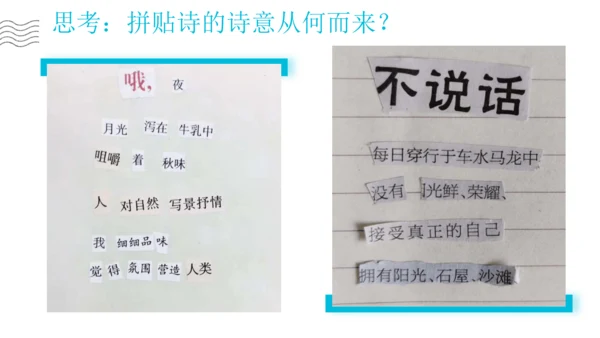 思考：拼贴诗的诗意从何而来？
哦，夜
月光 泻在 牛乳中
咀嚼 着 秋味
人 对自然 写景抒情
我 细细品味
觉得 氛围 营造 人类
不说话
每日穿行于车水马龙中
没有 光鲜、荣耀、
接受真正的自己
拥有阳光、石屋、沙滩